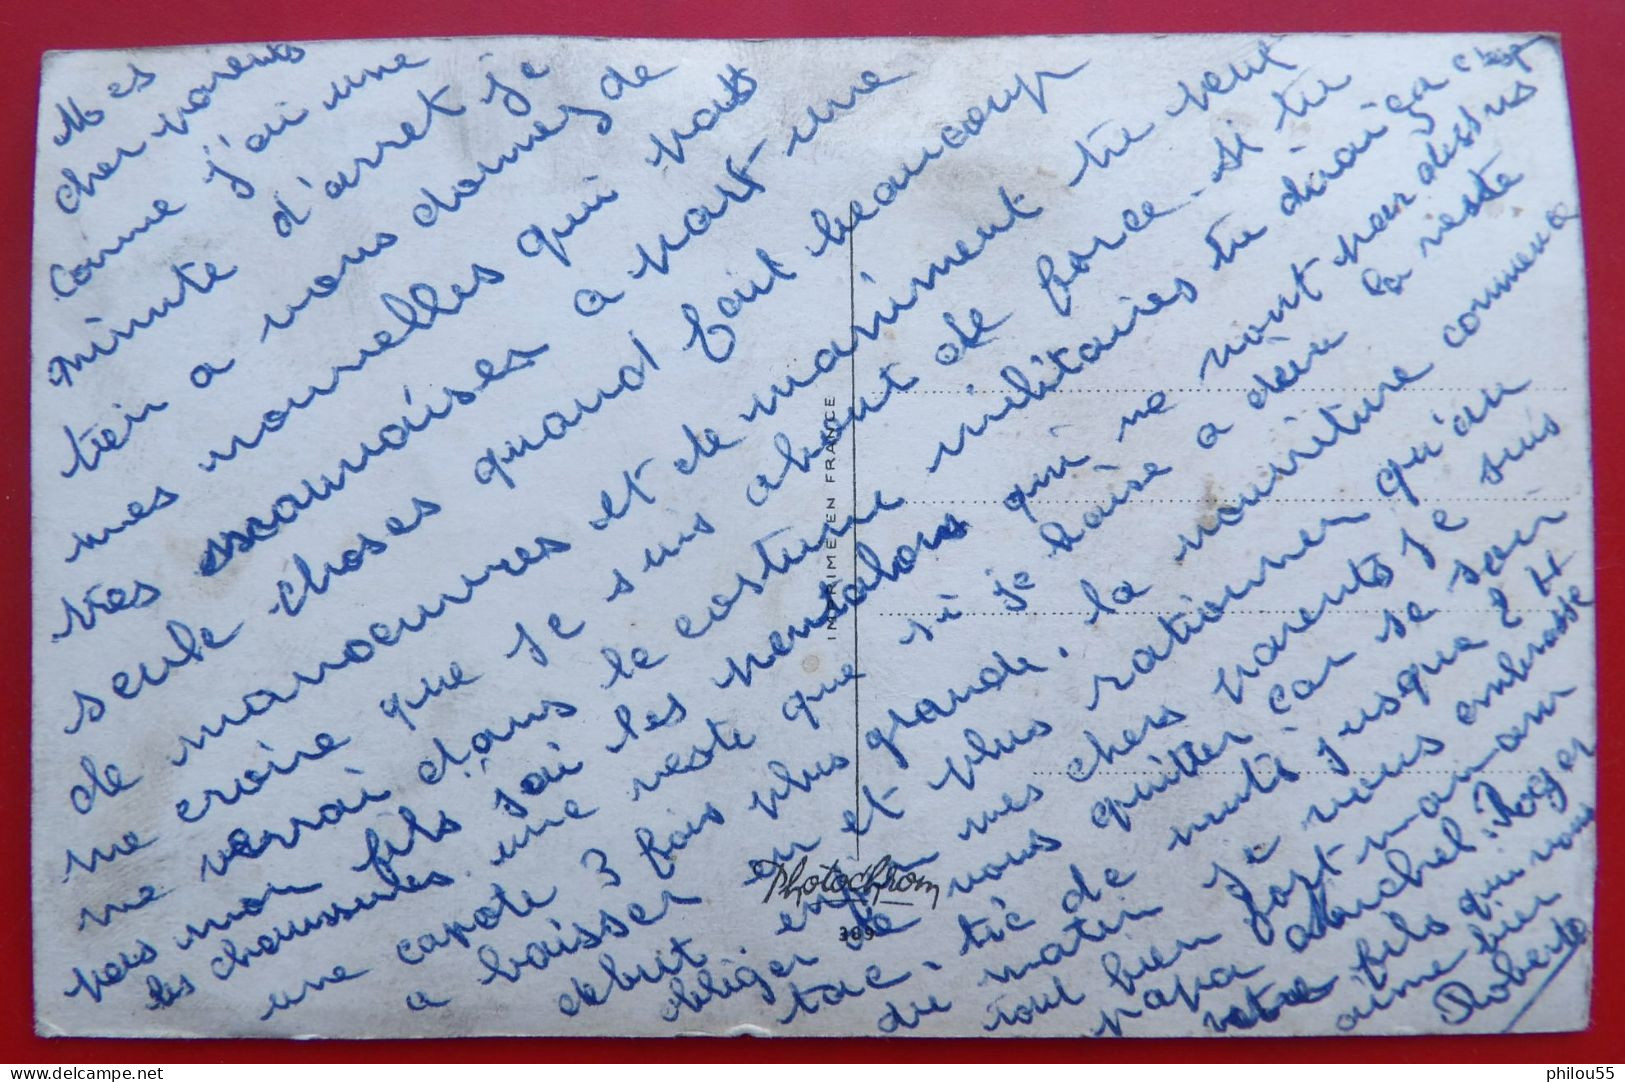 Mes
cher parents
comme j'ai une
minute d'arret je
tien a vous donnez de
mes nouvelles qui pats
très mauvaises a part une
seule choses quand fait beaucoup
de manoeuvres et de maniment tu peut
me croire que je suis about de force. si tu
me verrai dans le costume militaires tu dirai ça c'est
pas mon fils j'ai les pentalons qui ne vont pas desus
les chaussures une veste que si je baise a déja la veste
une capote 3 fois plus grande. la nourriture commence
a baisser on et plus rationner qu'au
debut. enfin mes chers parents je suis
obliger de vous quitter car se soir
tac. tic de nuit jusque 2 H
du matin je vous embrasse
tout bien fort maman
papa Michel Roger
votre fils qui vous
aime bien
Roberto
IMPRIMÉ EN FRANCE
Photochrom
389
delcampe.net
philou55